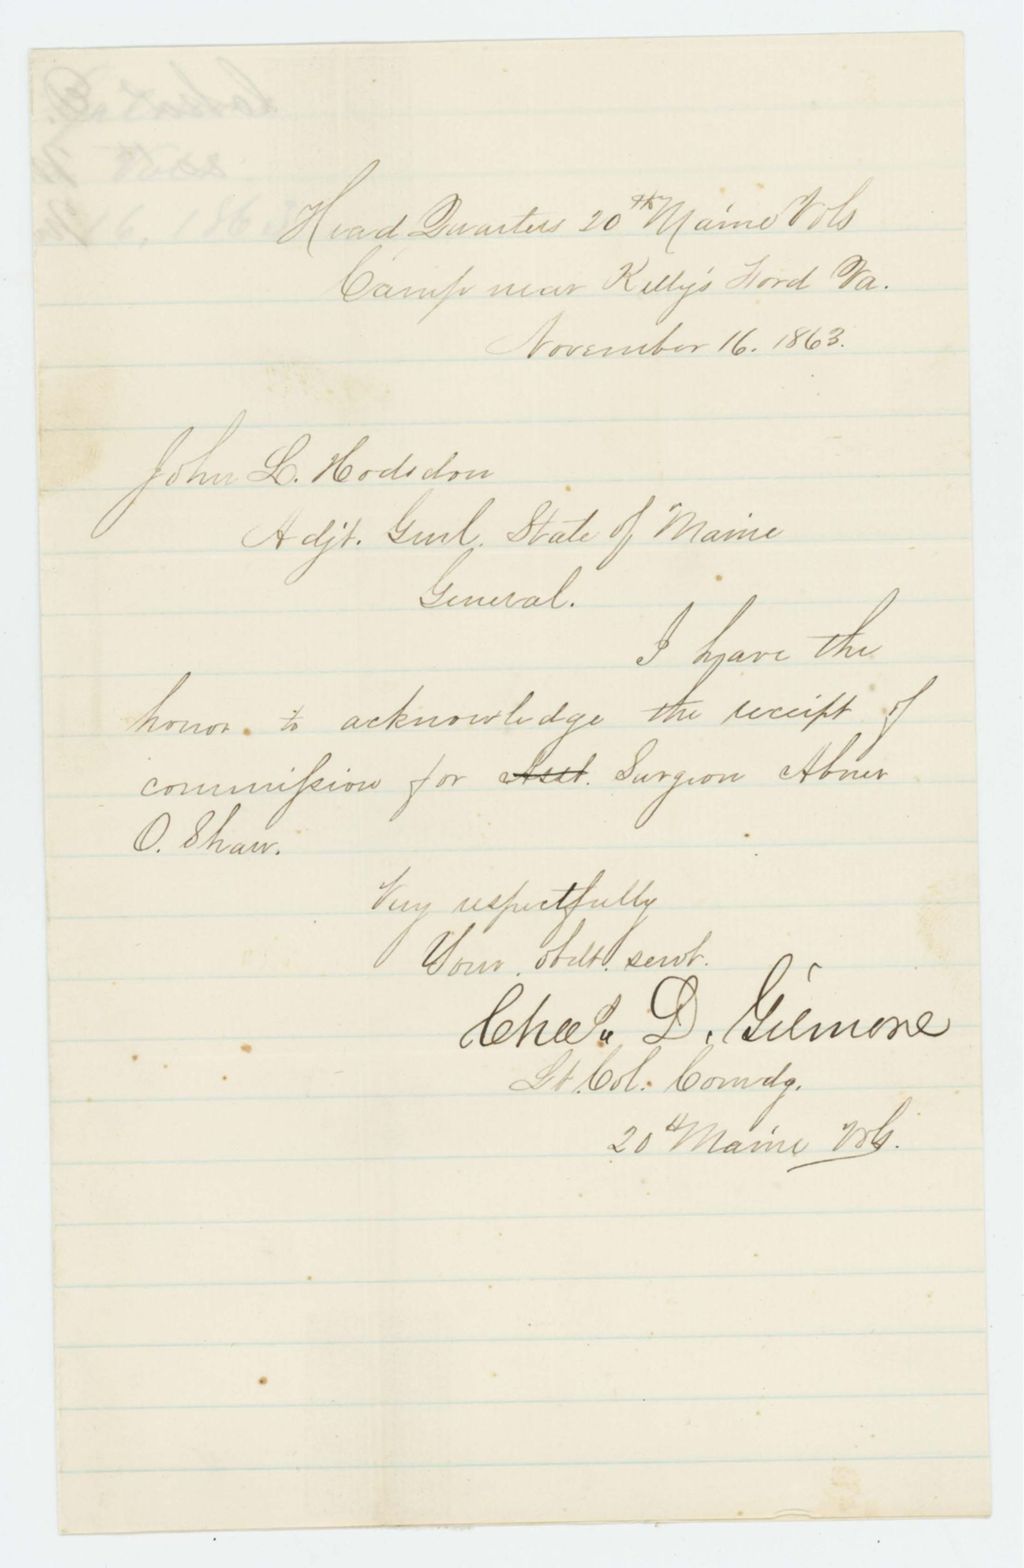 Head Quarters 20th Maine Vols
Camp near Kelly's Ford Va.
November 16. 1863.
John L. Hodsdon
Adjt. Genl. State of Maine
General.
I have the
honor to acknowledge the receipt of
commission for Asst. Surgeon Abner
O. Shaw.
Very respectfully
Your obdt. servt.
Chas. D. Gilmore
Lt. Col. Comdg.
20th Maine Vols.